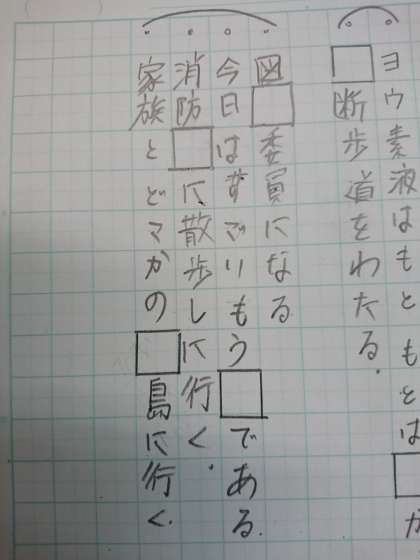 ヨウ素液はもともとは□か
□断歩道をわたる。
図□委員になる
今日はもう□である。
消防□に散歩しに行く。
家族とどこかの□島に行く。